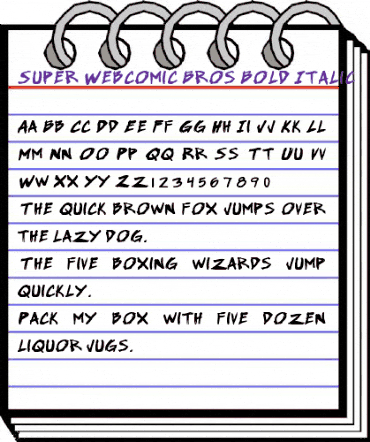 SUPER WEBCOMIC BROS BOLD ITALIC
AA BB CC DD EE FF GG HH II JJ KK LL
MM NN OO PP QQ RR SS TT UU VV
WW XX YY ZZ 1 2 3 4 5 6 7 8 9 0
THE QUICK BROWN FOX JUMPS OVER
THE LAZY DOG.
THE FIVE BOXING WIZARDS JUMP
QUICKLY.
PACK MY BOX WITH FIVE DOZEN
LIQUOR JUGS.